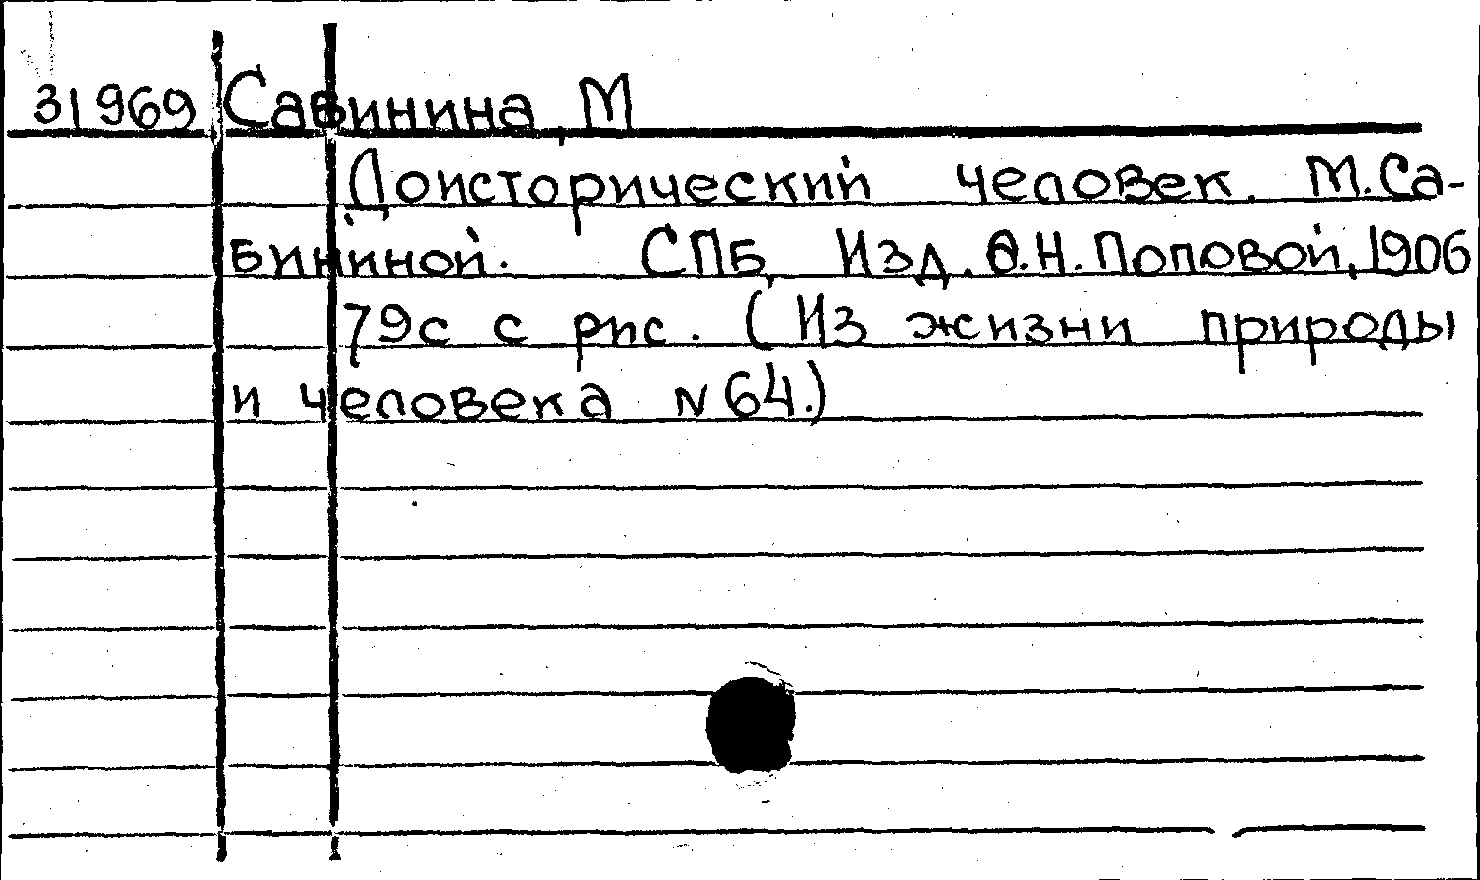 31969 Савинина, М
Доисторический человек. М.Са-
бининой. СПБ, Изд. Ѳ.Н. Поповой, 1906
79с с рис. (Из жизни природы
и человека N 64.)